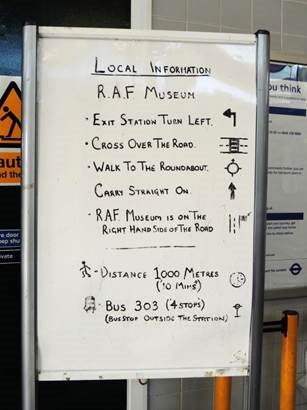 Local Information
R.A.F Museum
· Exit Station Turn Left.
· Cross Over The Road.
· Walk To The Roundabout.
Carry Straight On.
· R.A.F. Museum is on The
Right Hand Side of The Road
- Distance 1000 Metres
('10 Mins')
- Bus 303 ('4 stops)
(Bus stop outside the station)
you think
private